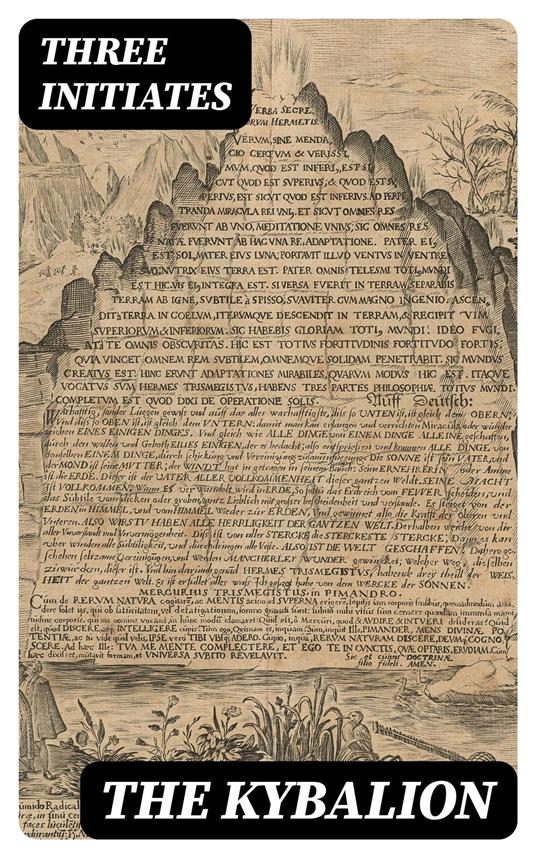 THREE
INITIATES
VERBA SECRE
ORUM HERMETIS.
VERUM, SINE MENDA,
CIO CERTUM & VERISSI
MUM, QUOD EST INFERI, EST SI
CUT QUOD EST SUPERIUS, & QUOD EST SU,
PERIUS, EST SICUT QUOD EST INFERIUS. AD PERPE
TRANDA MIRACULA REI UNI, ET SICUT OMNES RES
FUERUNT AB UNO, MEDITATIONE UNIUS, SIC OMNES RES
NATÆ FUERUNT AB HAC UNA RE, ADAPTATIONE. PATER EI,
EST SOL, MATER EIUS LUNA; PORTAVIT ILLUD VENTUS IN VENTRE
NUTRIX EIUS TERRA EST. PATER OMNIS TELESMI TOTI, MUNDI
EST HIC. VIS EI, INTEGRA EST. SI VERSA FUERIT IN TERRAM, SEPARABIS
TERRAM AB IGNE, SUBTILE à SPISSO, SUAVITER CUM MAGNO INGENIO. ASCEN,
DIT à TERRA IN COELUM, ITERUMQUE DESCENDIT IN TERRAM, & RECIPIT VIM
SUPERIORUM & INFERIORUM. SIC HABEBIS GLORIAM TOTI, MUNDI. IDEO FUGI,
ATà TE OMNIS OBSCURITAS. HIC EST TOTIUS FORTITUDINIS FORTITUDO FORTIS;
QUIA VINCET OMNEM REM SUBTILEM, OMNEMQUE SOLIDAM PENETRABIT. SIC MUNDUS
CREATUS EST. HINC ERUNT ADAPTATIONES MIRABILES, QUARUM MODUS HIC EST. ITAQUE
VOCATUS SUM HERMES TRISMEGISTUS, HABENS TRES PARTES PHILOSOPHIÆ TOTIUS MUNDI.
COMPLETUM EST QUOD DIXI DE OPERATIONE SOLIS. Auff Deutsch:
Warhafftig, sonder Luegen gewiss und auff das aller warhafftigste, diss so UNTEN ist, ist gleich dem OBERN;
Und diss so OBEN ist, ist gleich dem UNTERN: damit man kan erlangen und verrichten Miracula oder wunder
zeichen EINES EINIGEN DINGES. Und gleich wie ALLE DINGE von EINEM DINGE ALLEINE geschaffen,
durch den willen und Geboth EILLES EINIGEN, der es bedacht; also entspriessen und kommen ALLE DINGE von
demselben EINEM DINGE, durch schickung und Vereinigung zusammenfuegung. Die SONNE ist sein VATER, und
der MOND ist seine MUTTER; der WINDT hat in getragen in seinem Bauche: Seine ERNEHRERIN oder Amme
ist die ERDE. Dieser ist der VATER ALLER VOLLKOMMENHEIT dieser gantzen Welt. SEINE MACHT
IST VOLLKOMMEN, Wann ES ver wandelt wird in ERDE; So soltu das Erdreich vom FEUER scheiden, und
das Subtile vom dicken oder groben, gantz lieblich mit grosser bescheidenheit und verstande. Es steiget von der
ERDEN in HIMMEL, und vom HIMMEL Wieder zur ERDEN, Und gewinnet also die Kraft der Obern und
Unteren. ALSO WIRSTU HABEN ALLE HERRLIGKEIT DER GANTZEN WELT. Derhalben weiche von dir
aller Unverstandt und Unvermögenheit. Diss ist von aller STERCKE die STERCKESTE STERCKE. Dann es kan
uber winden alle Subtiligkeit, und durchdringen alle Veste. ALSO IST DIE WELT GESCHAFFEN. Dahero ge,
schehen seltzame Vereinigungen, und Werden MANCHERLEY WUNDER gewircket; Welcher Weg, die selben
zuwürcken, dieser ist. Und bin darumb genandt HERMES TRISMEGISTUS, habende drey theill der WEIS,
HEIT der gantzen Welt. Es ist erfüllet alles wass Ich gesagt habe von dem WERCKE der SONNEN.
MERCURIUS TRISMEGISTUS, in PIMANDRO.
Cum de RERUM NATURA cogitarē, ac MENTIS aciem ad SUPERNA erigere, sopitis iam corporis sensibus, quemadmodum acci,
dere solet ijs, qui ob satietatem, vel defatigationem, somno gravati sunt: subitò mihi visus sum cernere quendam immensa magni
tudine corporis, qui me nomine vocans, in hunc modū clamaret: Quid est, ô Mercuri, quod & AUDIRE & INTUERI desideras? Quid
est, quod DISCERE, ac INTELLIGERE cupis? Tum ego, Quisnam es, inquam? Sum, inquit Ille, PIMANDER, MENS DIVINÆ PO,
TENTIÆ, ac tu vide quid velis, IPSE vero TIBI UBIQ; ADERO. Cupio, inqu, RERUM NATURAM DISCERE, DEUMQ; COGNO,
SCERE. Ad hæc Ille: TUA ME MENTE COMPLECTERE, ET EGO TE IN CUNCTIS, QUÆ OPTARIS, ERUDIAM. Cum
hæc dixisset, mutavit formam, et UNIVERSA SUBITO REVELAVIT.
Sic et cujunt DOCTRINÆ
filio fideli. AMEN.
umido Radical
THE KYBALION